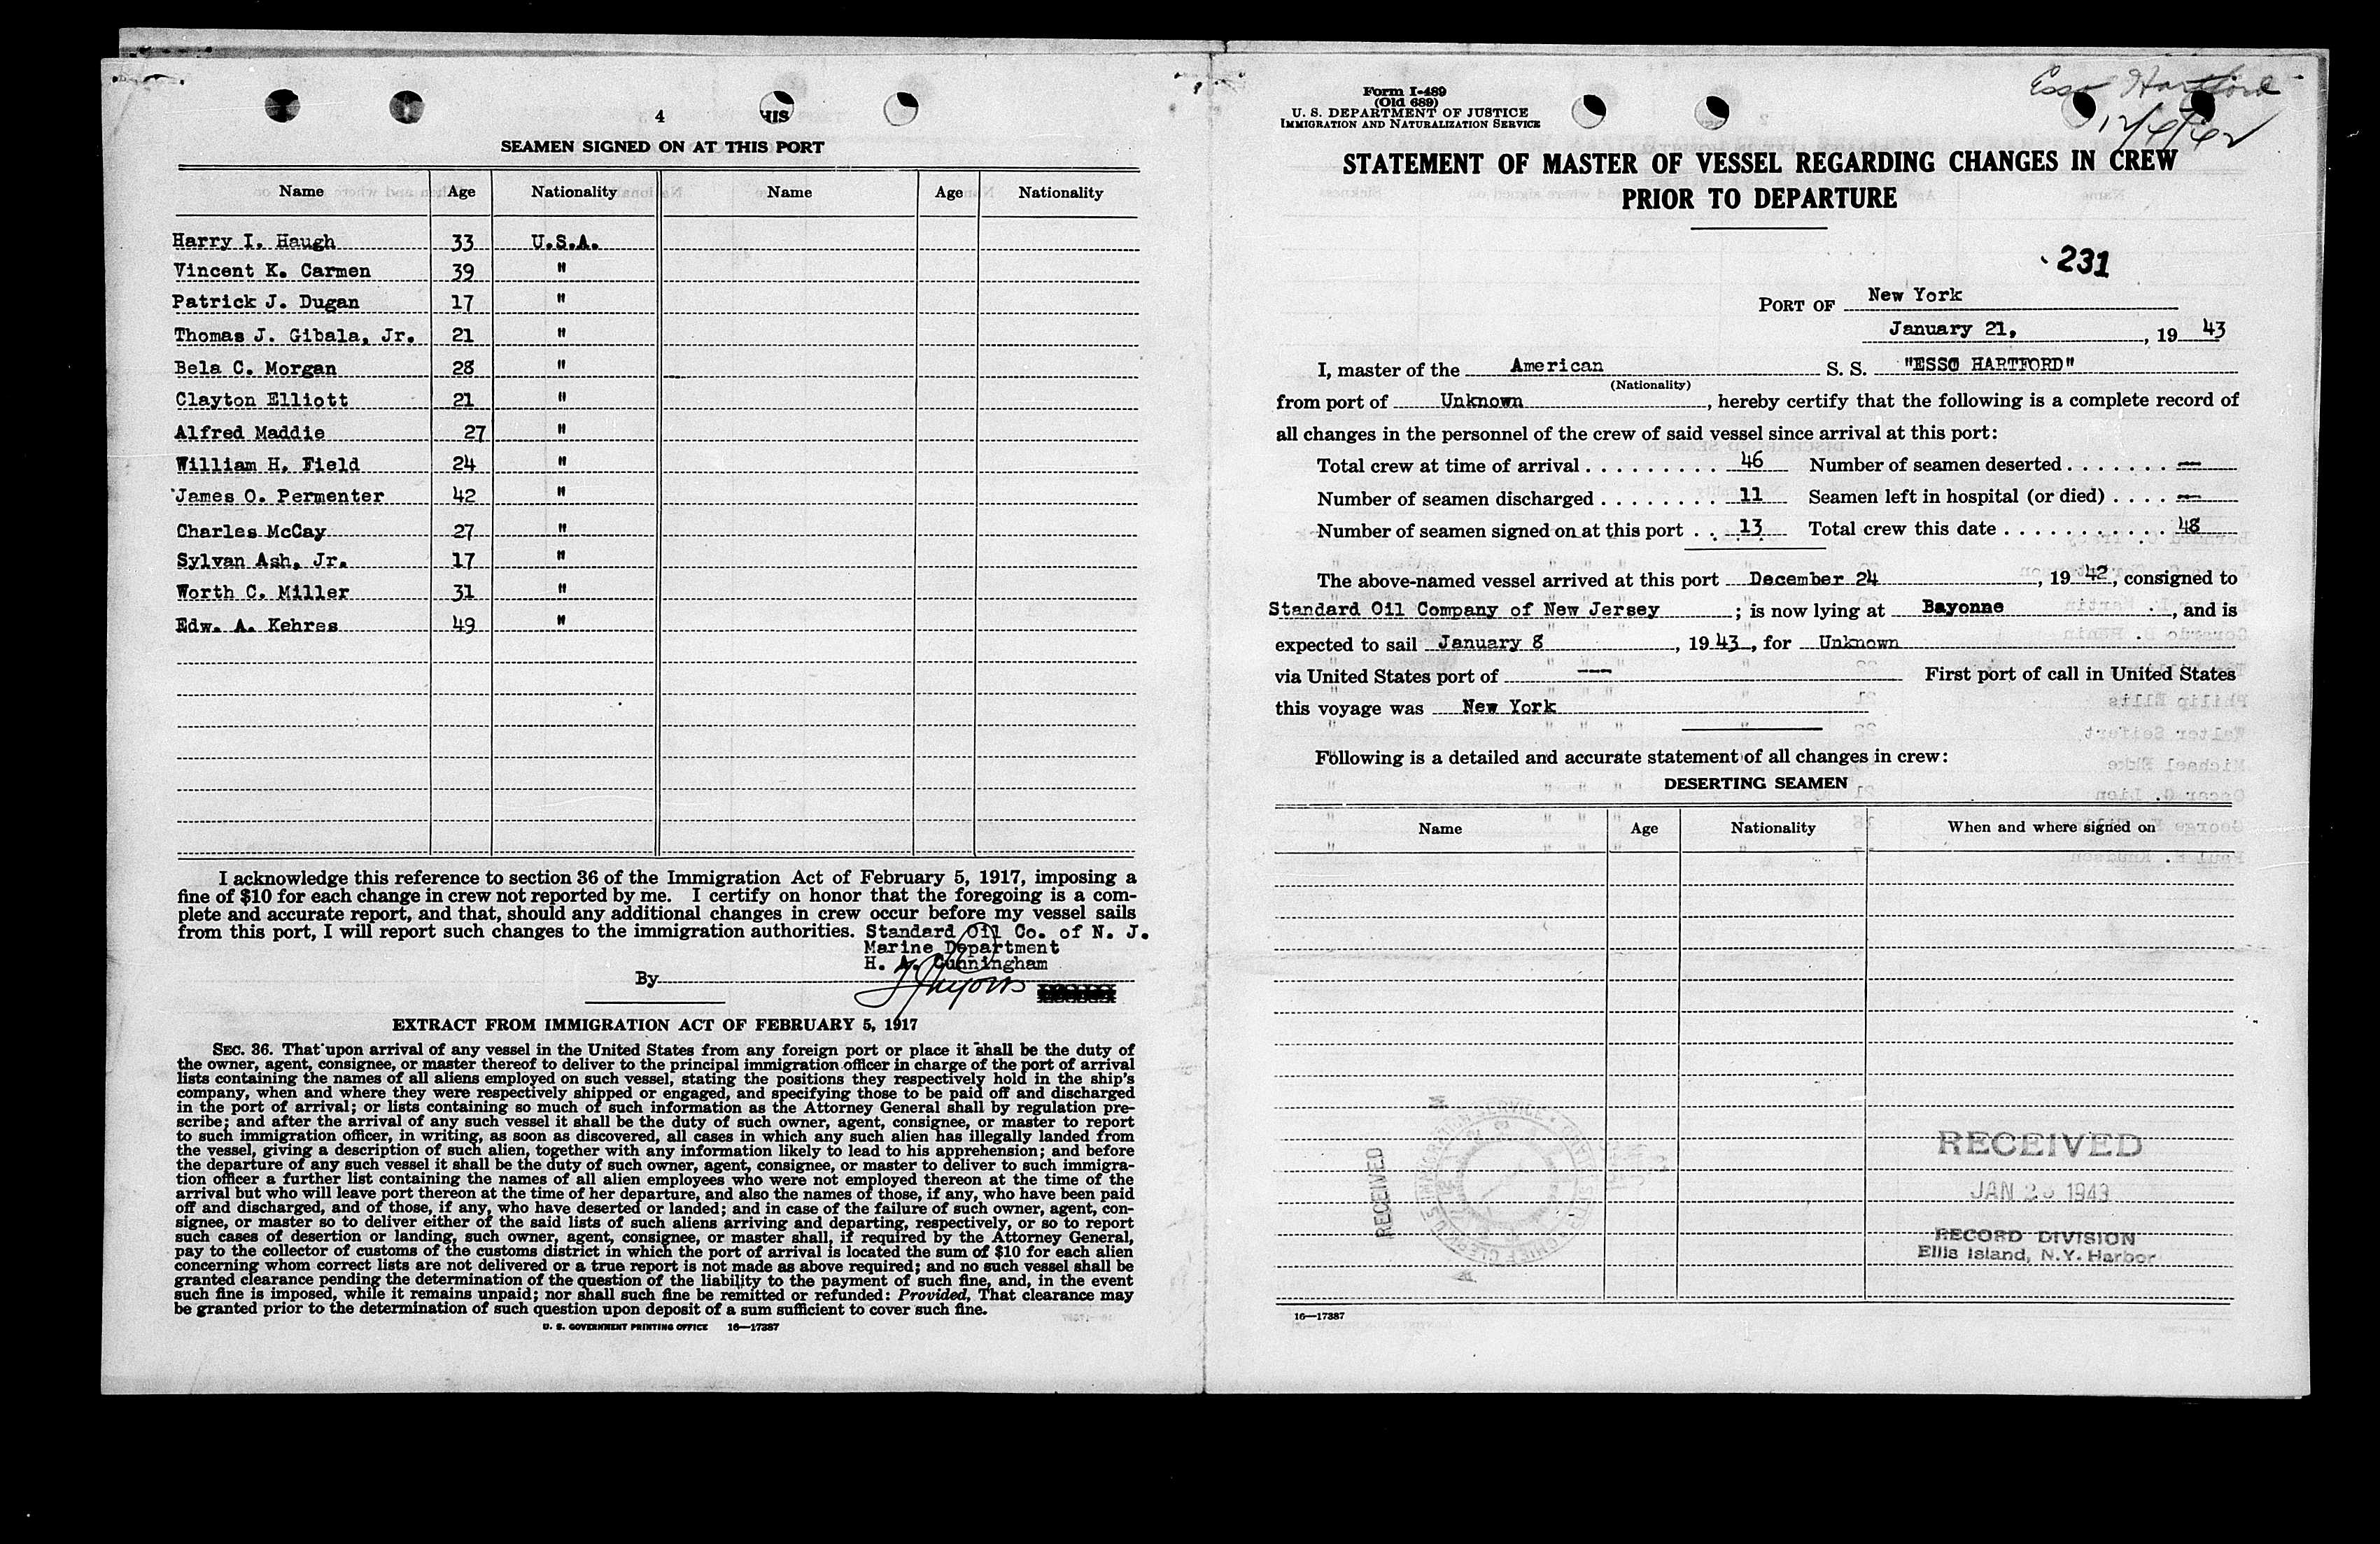 4
HIS
SEAMEN SIGNED ON AT THIS PORT
Name Age Nationality Name Age Nationality
Harry I. Haugh 33 U.S.A.
Vincent K. Carmen 39 "
Patrick J. Dugan 17 "
Thomas J. Gibala, Jr. 21 "
Bela C. Morgan 28 "
Clayton Elliott 21 "
Alfred Maddie 27 "
William H. Field 24 "
James O. Permenter 42 "
Charles McCay 27 "
Sylvan Ash, Jr. 17 "
Worth C. Miller 31 "
Edw. A. Kehres 49 "
I acknowledge this reference to section 36 of the Immigration Act of February 5, 1917, imposing a
fine of $10 for each change in crew not reported by me. I certify on honor that the foregoing is a com-
plete and accurate report, and that, should any additional changes in crew occur before my vessel sails
from this port, I will report such changes to the immigration authorities. Standard Oil Co. of N. J.
Marine Department
H. A. Cunningham
By
EXTRACT FROM IMMIGRATION ACT OF FEBRUARY 5, 1917
SEC. 36. That upon arrival of any vessel in the United States from any foreign port or place it shall be the duty of
the owner, agent, consignee, or master thereof to deliver to the principal immigration officer in charge of the port of arrival
lists containing the names of all aliens employed on such vessel, stating the positions they respectively hold in the ship's
company, when and where they were respectively shipped or engaged, and specifying those to be paid off and discharged
in the port of arrival; or lists containing so much of such information as the Attorney General shall by regulation pre-
scribe; and after the arrival of any such vessel it shall be the duty of such owner, agent, consignee, or master to report
to such immigration officer, in writing, as soon as discovered, all cases in which any such alien has illegally landed from
the vessel, giving a description of such alien, together with any information likely to lead to his apprehension; and before
the departure of any such vessel it shall be the duty of such owner, agent, consignee, or master to deliver to such immigra-
tion officer a further list containing the names of all alien employees who were not employed thereon at the time of the
arrival but who will leave port thereon at the time of her departure, and also the names of those, if any, who have been paid
off and discharged, and of those, if any, who have deserted or landed; and in case of the failure of such owner, agent, con-
signee, or master so to deliver either of the said lists of such aliens arriving and departing, respectively, or so to report
such cases of desertion or landing, such owner, agent, consignee, or master shall, if required by the Attorney General,
pay to the collector of customs of the customs district in which the port of arrival is located the sum of $10 for each alien
concerning whom correct lists are not delivered or a true report is not made as above required; and no such vessel shall be
granted clearance pending the determination of the question of the liability to the payment of such fine, and, in the event
such fine is imposed, while it remains unpaid; nor shall such fine be remitted or refunded: Provided, That clearance may
be granted prior to the determination of such question upon deposit of a sum sufficient to cover such fine.
U. S. GOVERNMENT PRINTING OFFICE 16—17387
Form I-489
(Old 689)
U. S. DEPARTMENT OF JUSTICE
IMMIGRATION AND NATURALIZATION SERVICE
Esso Hartford
STATEMENT OF MASTER OF VESSEL REGARDING CHANGES IN CREW
PRIOR TO DEPARTURE
231
PORT OF New York
January 21, , 19 43
I, master of the American S. S. "ESSO HARTFORD"
(Nationality)
from port of Unknown , hereby certify that the following is a complete record of
all changes in the personnel of the crew of said vessel since arrival at this port:
Total crew at time of arrival . . . . . . . . . . 46 Number of seamen deserted . . . . . . . —
Number of seamen discharged . . . . . . . . 11 Seamen left in hospital (or died) . . . . —
Number of seamen signed on at this port . . . . 13 Total crew this date . . . . . . . . . . . 48
The above-named vessel arrived at this port December 24 , 19 42, consigned to
Standard Oil Company of New Jersey ; is now lying at Bayonne , and is
expected to sail January 8 , 19 43, for Unknown
via United States port of --- First port of call in United States
this voyage was New York
Following is a detailed and accurate statement of all changes in crew:
DESERTING SEAMEN
Name Age Nationality When and where signed on
RECEIVED
RECEIVED
1943
RECORD DIVISION
Ellis Island, N.Y. Harbor
16—17387